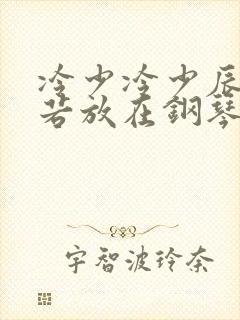 冷少冷少辰
若放在鋼琴
宇智波玲奈